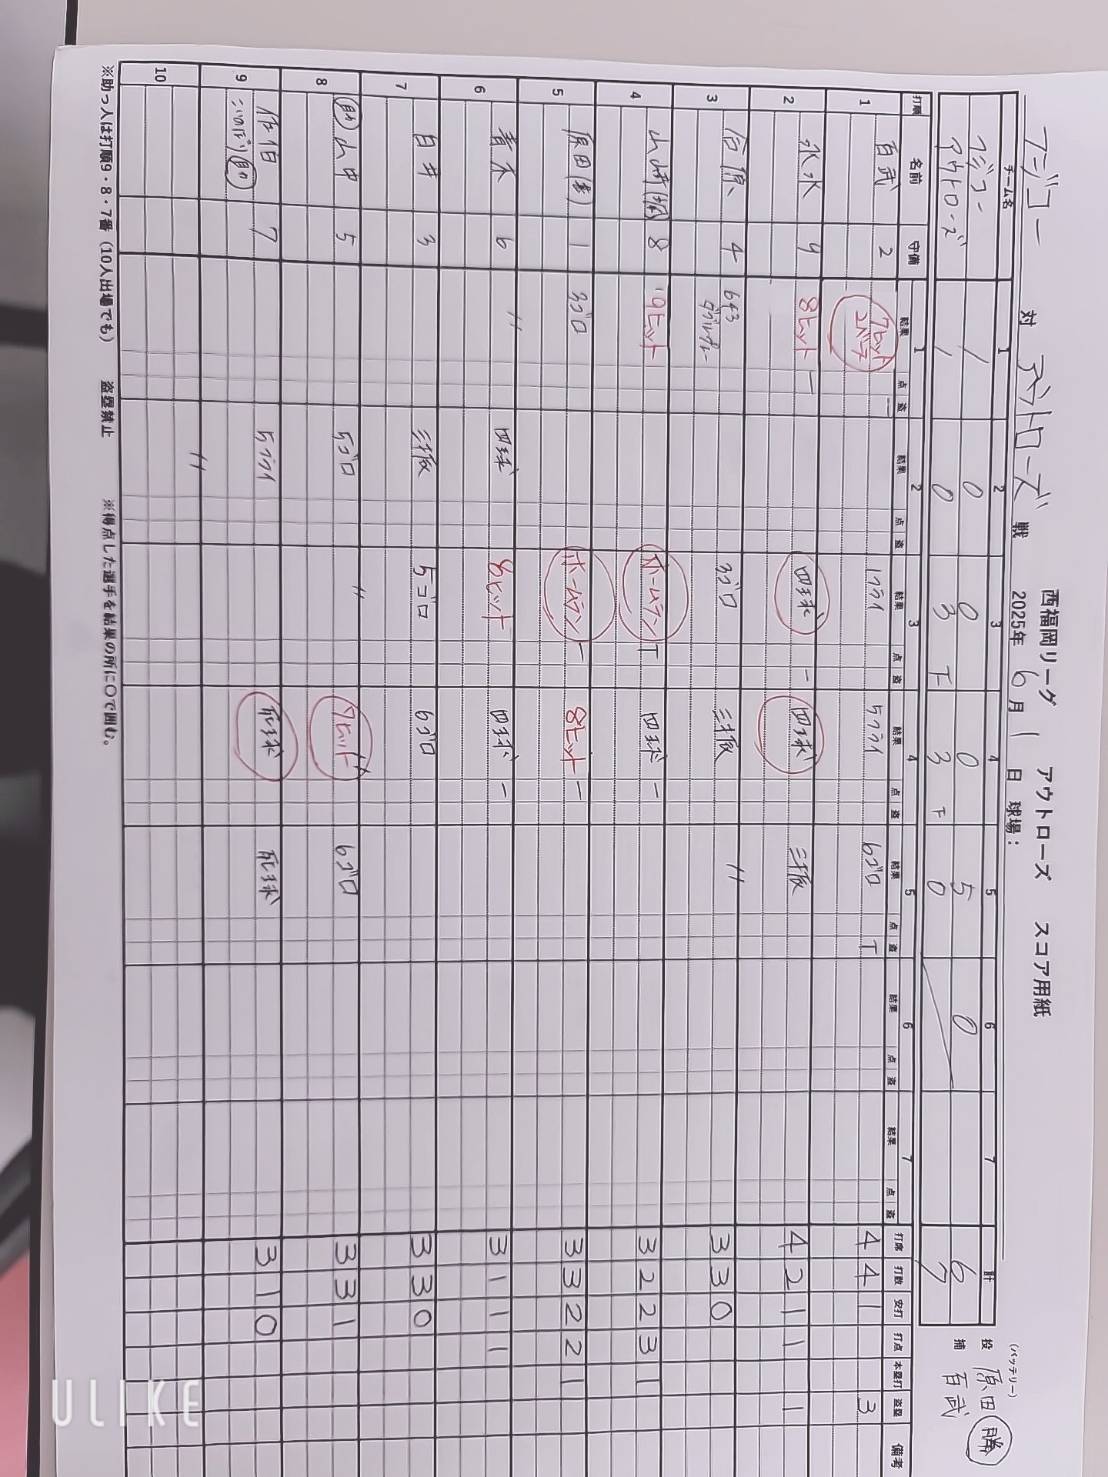 西福岡リーグ アウトローズ スコア用紙
フジコー 対 アウトローズ 戦 2025年 6月 1日 球場：
チーム名 1 2 3 4 5 6 7 計
フジコー 1 0 0 0 5 0 6
アウトローズ 1 0 3 3 0 7
(バッテリー)
投 原田 勝
捕 百武
打順 名前 守備 1 2 3 4 5 6 7
結果 点 盗 結果 点 盗 結果 点 盗 結果 点 盗 結果 点 盗 結果 点 盗 結果 点 盗 打席 打数 安打 打点 本塁打 盗塁 備考
1 百武 2 7ヒット 2ベース 1フライ 5フライ 6ゴロ 4 4 1 3
2 永水 9 8ヒット 四球 四球 三振 4 2 1 1 1
3 合原 4 643 ダブルプレー 3ゴロ 三振 3 3 0
4 山崎 8 9ヒット ホームラン 四球 3 2 2 3 1
5 原田 1 3ゴロ ホームラン 8ヒット 3 3 2 2 1
6 青木 6 四球 8ヒット 四球 3 1 1 1
7 白井 3 三振 5ゴロ 6ゴロ 3 3 0
8 助 山中 5 5ゴロ 7ヒット 6ゴロ 3 3 1
9 佐伯 助 7 5フライ 死球 死球 3 1 0
10
※助っ人は打順9・8・7番（10人出場でも） 盗塁禁止 ※得点した選手を結果の所に〇で囲む。
ULIKE